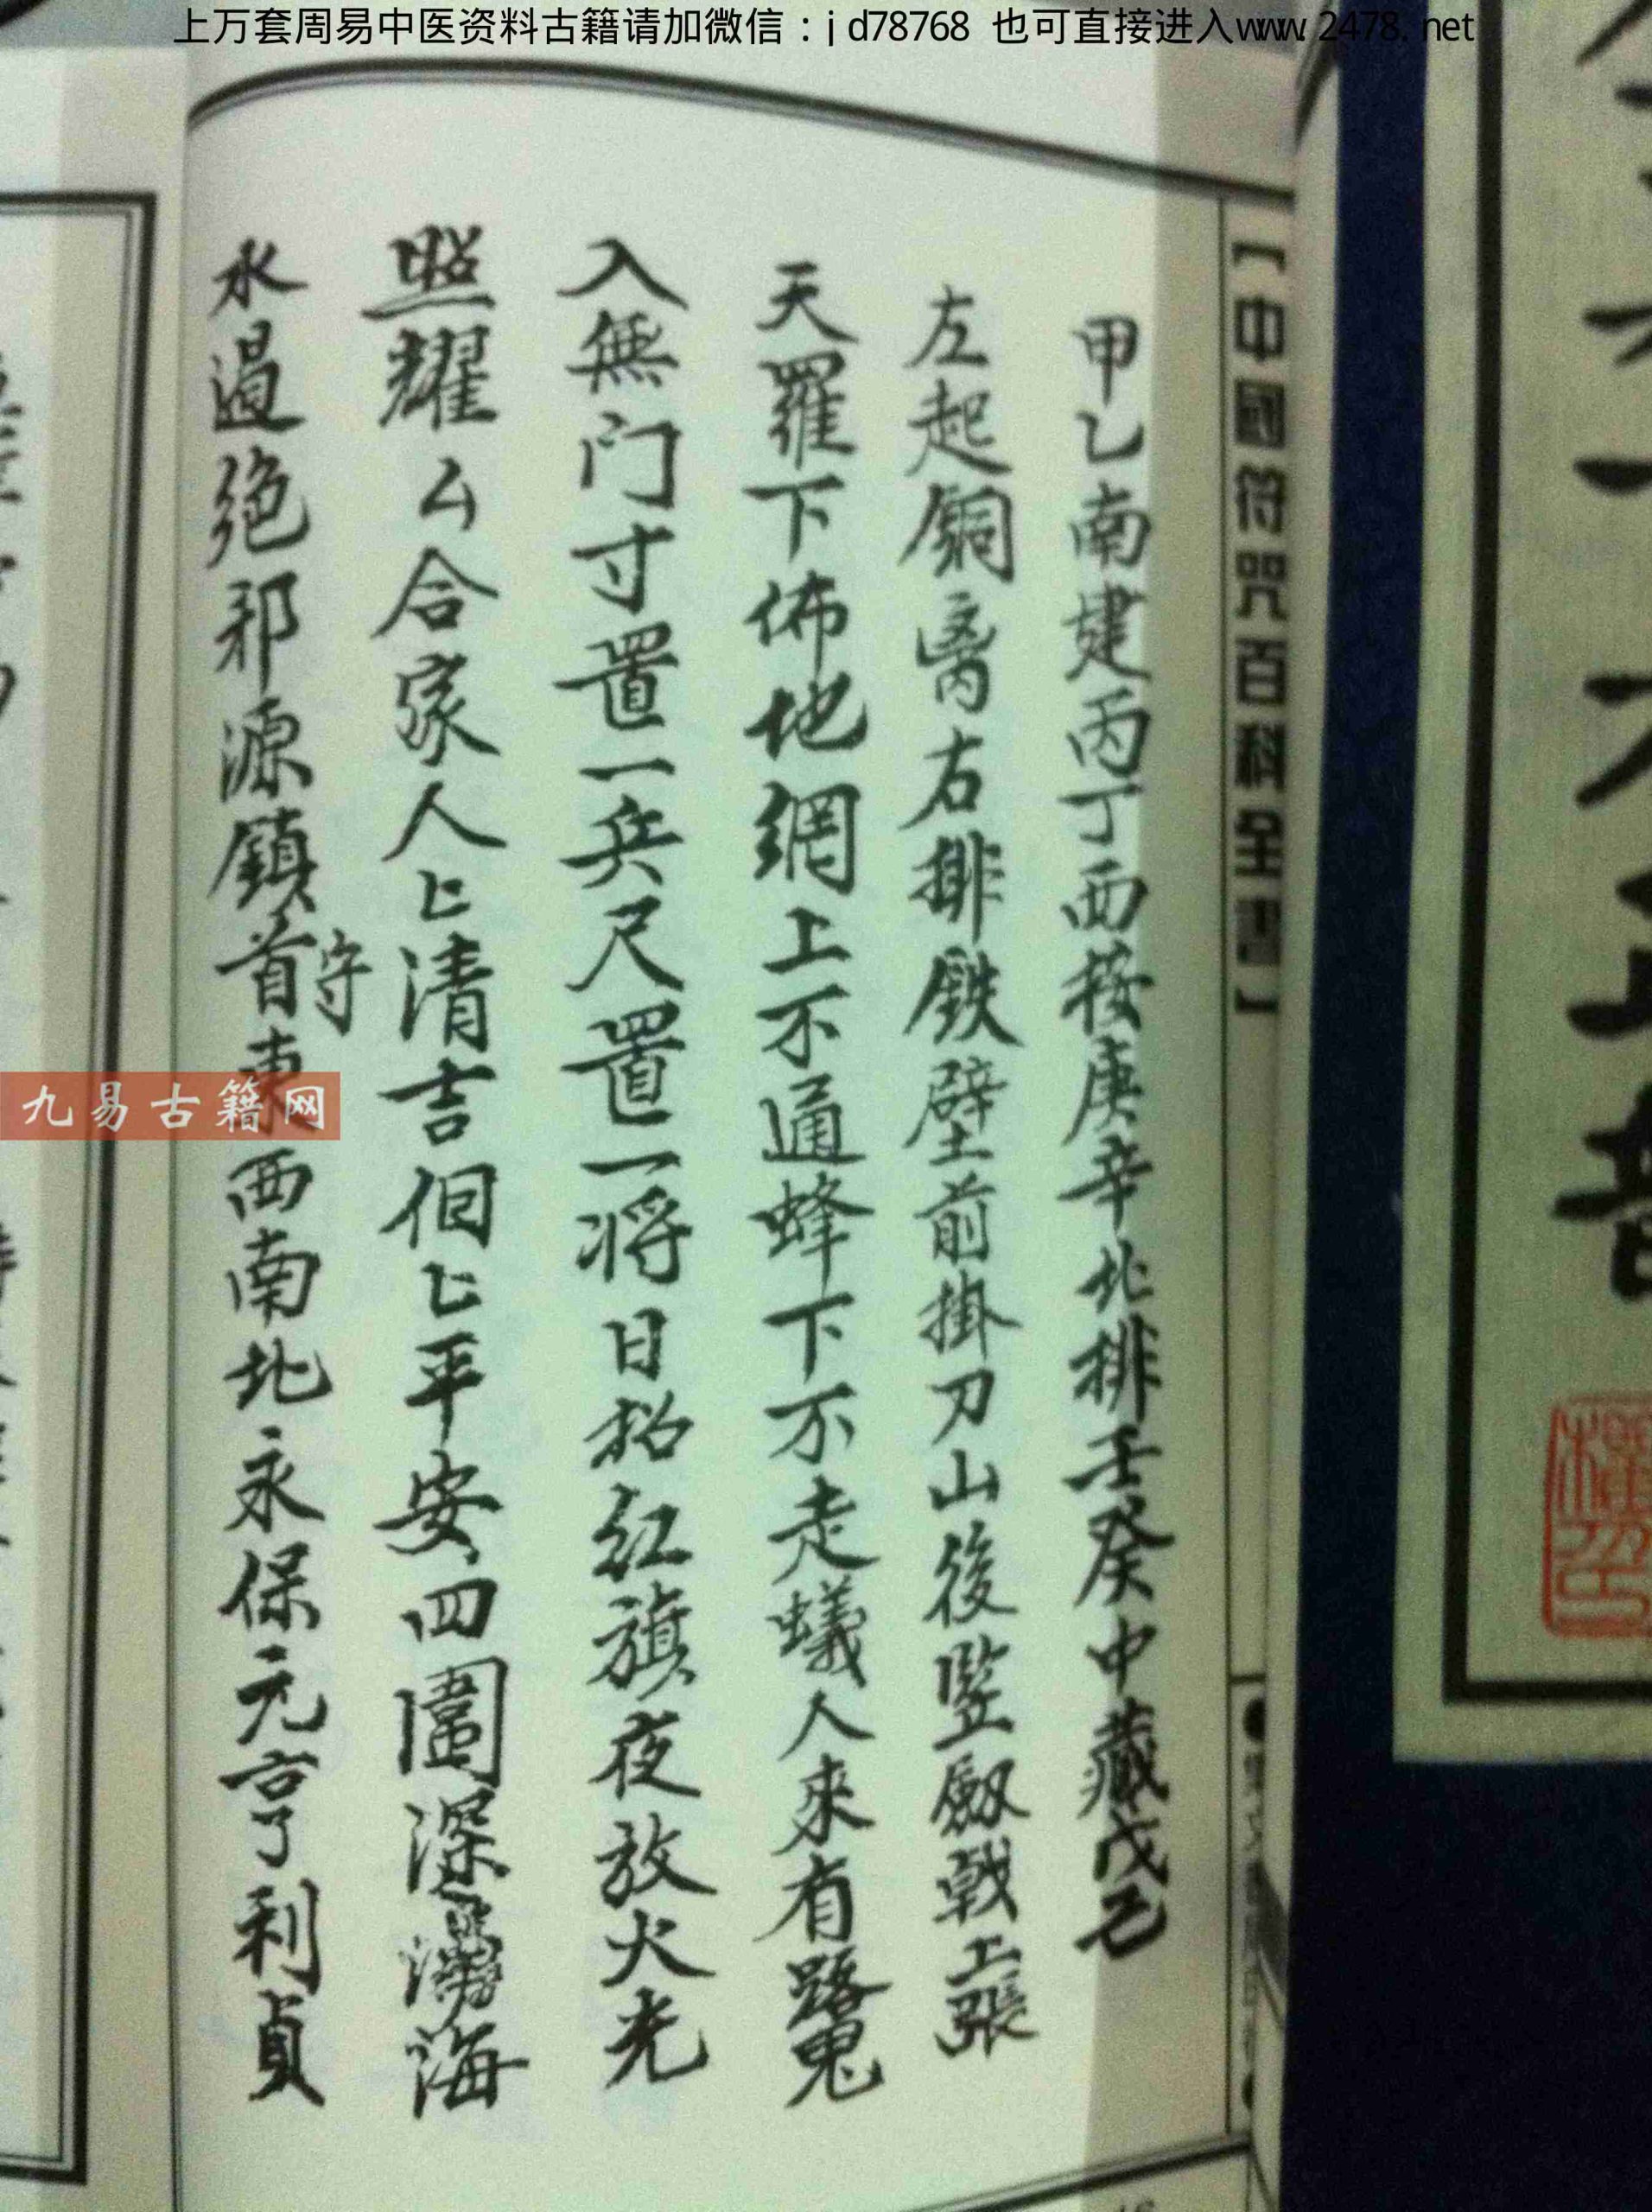 上万套周易中医资料古籍请加微信：jd78768 也可直接进入www.2478.net
【中國符咒百科全書】
甲乙南建丙丁西按庚辛北排壬癸中藏戊己
左起銅 右排鉄壁前掛刀山後竪劔戟上張
天羅下佈地網上不通蜂下不走蟻人來有路鬼
入無门寸置一兵尺置一将日招红旗夜放火光
照耀厶合家人匕清吉個匕平安四圍深 海
水過绝邪源鎮首東西南北永保元亨利貞
守
九易古籍网